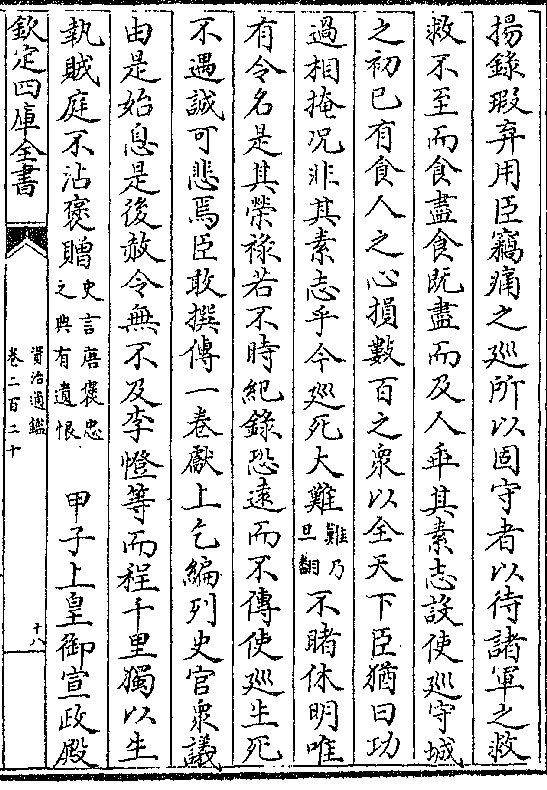 揚錄瑕弃用臣竊痛之廵所以固守者以待諸軍之救
救不至而食盡食旣盡而及人乖其素志設使廵守城
之初已有食人之心損數百之衆以全天下臣猶曰功
過相掩况非其素志乎今廵死大難難乃旦翻不睹休明唯
有令名是其榮禄若不時紀錄恐逺而不傳使廵生死
不遇誠可悲焉臣敢撰傳一卷獻上乞編列史官衆議
由是始息是後赦令無不及李憕等而程千里獨以生
執賊庭不沾褒贈史言唐褒忠之典有遺恨 甲子上皇御宣政殿
欽定四庫全書 資治通鑑卷二百二十 十八